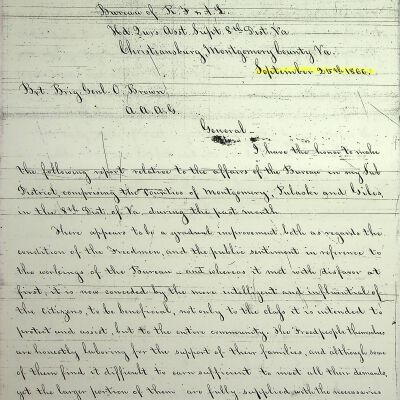 Bureau of R. F. & A. L.
Hd. Qurs. Asst. Supt. 8th Dist. Va.
Christiansburg, Montgomery County Va.
September 25th 1866.
Bvt. Brig. Genl. O. Brown,
A. A. A. G.
General
I have the honor to make
the following report relative to the affairs of the Bureau in my Sub
District, comprising the Counties of Montgomery, Pulaski and Giles,
in the 8th Dist. of Va. during the past month
There appears to be a gradual improvement both as regards the
condition of the Freedmen, and the public sentiment in reference to
the workings of the Bureau – and whereas it met with disfavor at
first, it is now conceded by the more intelligent and influential of
the citizens, to be beneficial, not only to the class it is intended to
protect and assist, but to the entire community. The Freedpeople themselves
are honestly laboring for the support of their families, and although some
of them find it difficult to earn sufficient to meet all their demands,
yet the larger portion of them are fully supplied with the necessaries